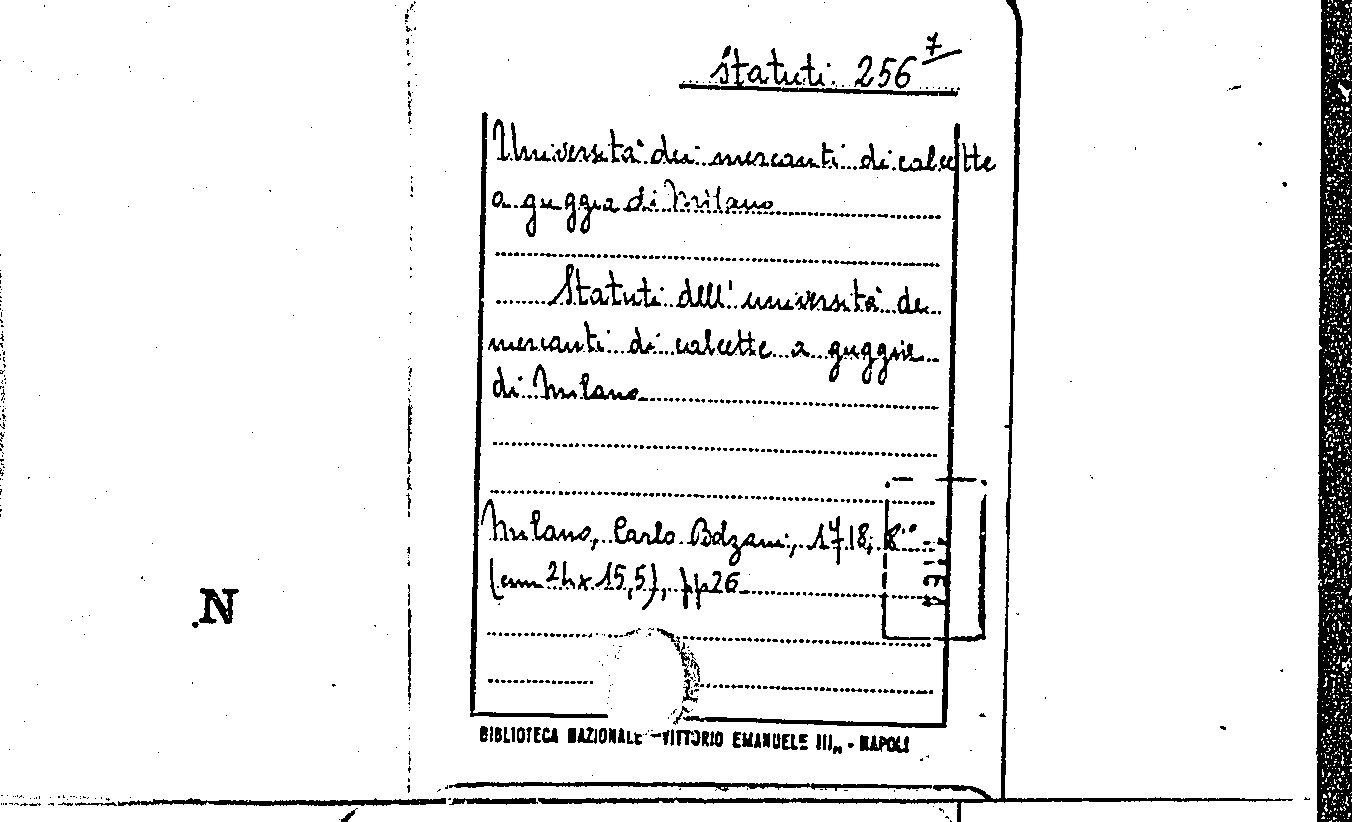 Statuti 256 7
Università dei mercanti di calcette
a guggia di Milano
Statuti dell'università de
mercanti di calcette a guggie
di Milano
Milano, Carlo Bolzani, 1718, 8°
(cm 2h x 15,5), pp 26
N
BIBLIOTECA NAZIONALE "VITTORIO EMANUELE III„ - NAPOLI